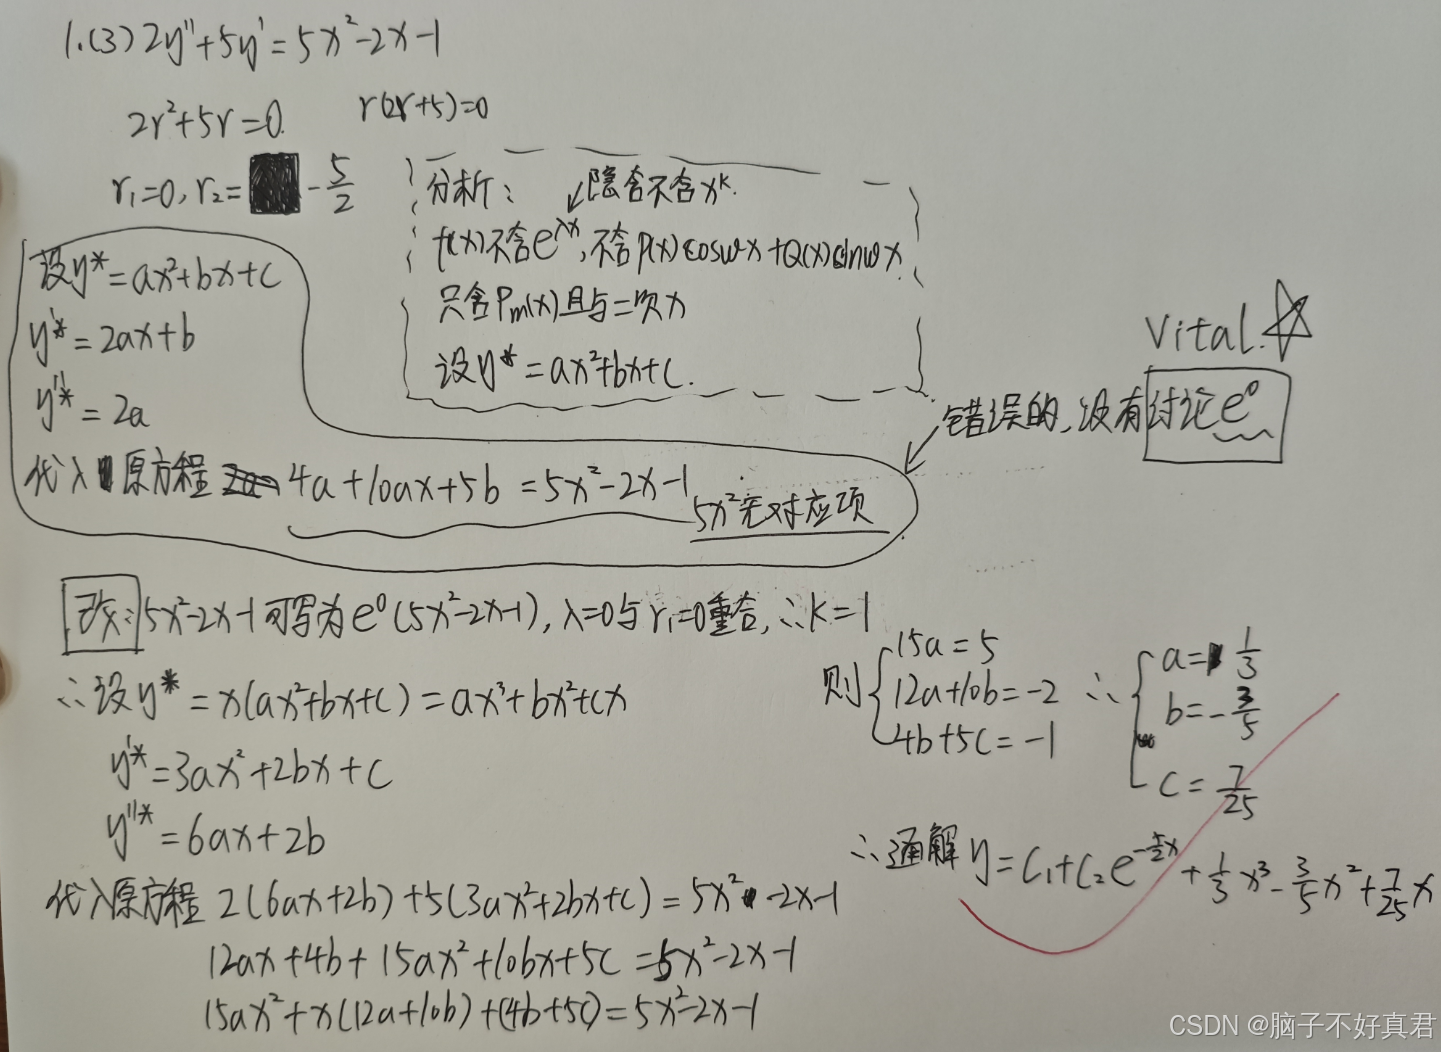 1.(3) 2y''+5y'=5x²-2x-1
2r²+5r=0. r(2r+5)=0
r₁=0, r₂= -5/2
分析： ↙隐含不含xᵏ.
f(x)不含e^λx, 不含P(x)coswx+Q(x)sinwx
只含Pm(x)且与二次
设y*=ax²+bx+c.
设y*=ax²+bx+c
y'*=2ax+b
y''*=2a
代入原方程 4a+10ax+5b=5x²-2x-1
5x²无对应项
Vital.☆
错误的, 没有讨论e⁰
改: 5x²-2x-1可写为e⁰(5x²-2x-1), λ=0与r₁=0重合, ∴k=1
∴设y*=x(ax²+bx+c)=ax³+bx²+cx
y'*=3ax²+2bx+c
y''*=6ax+2b
代入原方程 2(6ax+2b)+5(3ax²+2bx+c)=5x²-2x-1
12ax+4b+15ax²+10bx+5c=5x²-2x-1
15ax²+x(12a+10b)+(4b+5c)=5x²-2x-1
则{15a=5
12a+10b=-2
4b+5c=-1
∴{a=1/3
b=-3/5
c=7/25
∴通解y=C₁+C₂e^(-5/2 x)+1/3x³-3/5x²+7/25x
CSDN @脑子不好真君